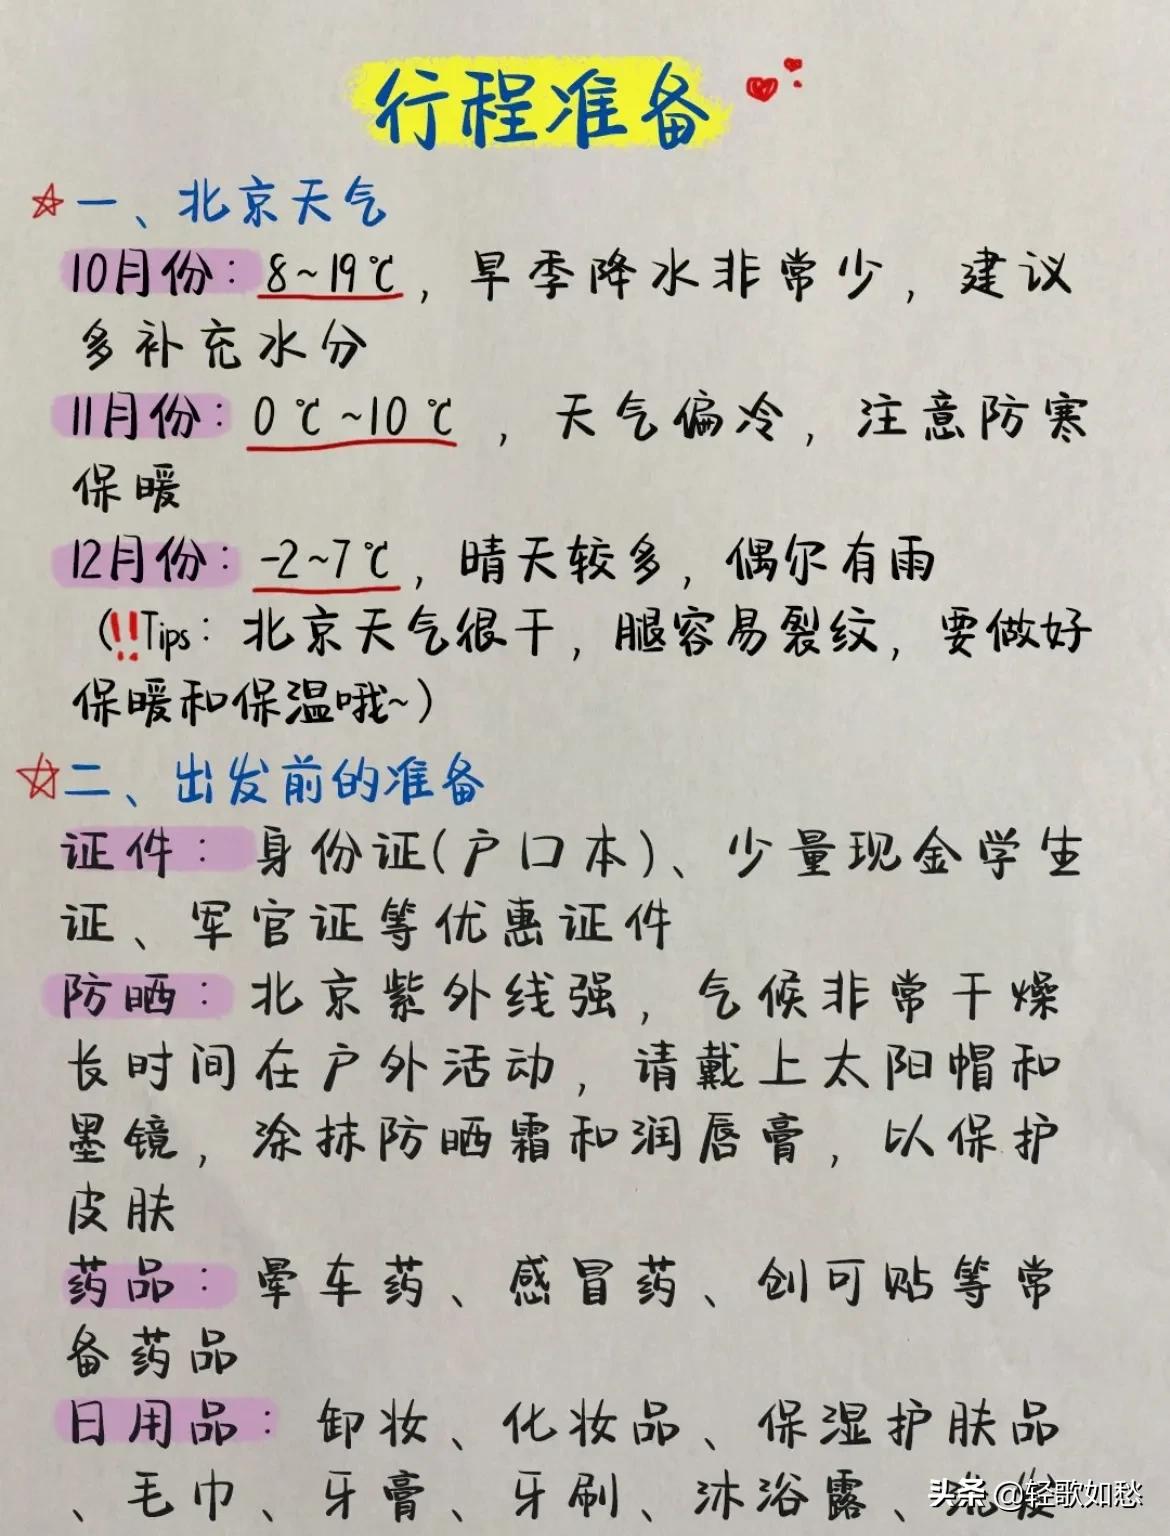 行程准备
一、北京天气
10月份：8~19℃，早季降水非常少，建议
多补充水分
11月份：0℃~10℃，天气偏冷，注意防寒
保暖
12月份：-2~7℃，晴天较多，偶尔有雨
(!!Tips：北京天气很干，腿容易裂纹，要做好
保暖和保温哦~)
二、出发前的准备
证件：身份证(户口本)、少量现金学生
证、军官证等优惠证件
防晒：北京紫外线强，气候非常干燥
长时间在户外活动，请戴上太阳帽和
墨镜，涂抹防晒霜和润唇膏，以保护
皮肤
药品：晕车药、感冒药、创可贴等常
备药品
日用品：卸妆、化妆品、保湿护肤品
、毛巾、牙膏、牙刷、沐浴露、
头条 @轻歌如愁